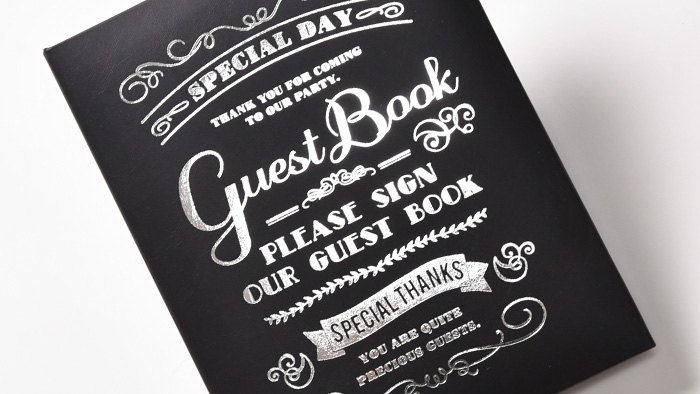 SPECIAL DAY
THANK YOU FOR COMING
TO OUR PARTY.
Guest Book
PLEASE SIGN
OUR GUEST BOOK
SPECIAL THANKS
YOU ARE QUITE
PRECIOUS GUESTS.